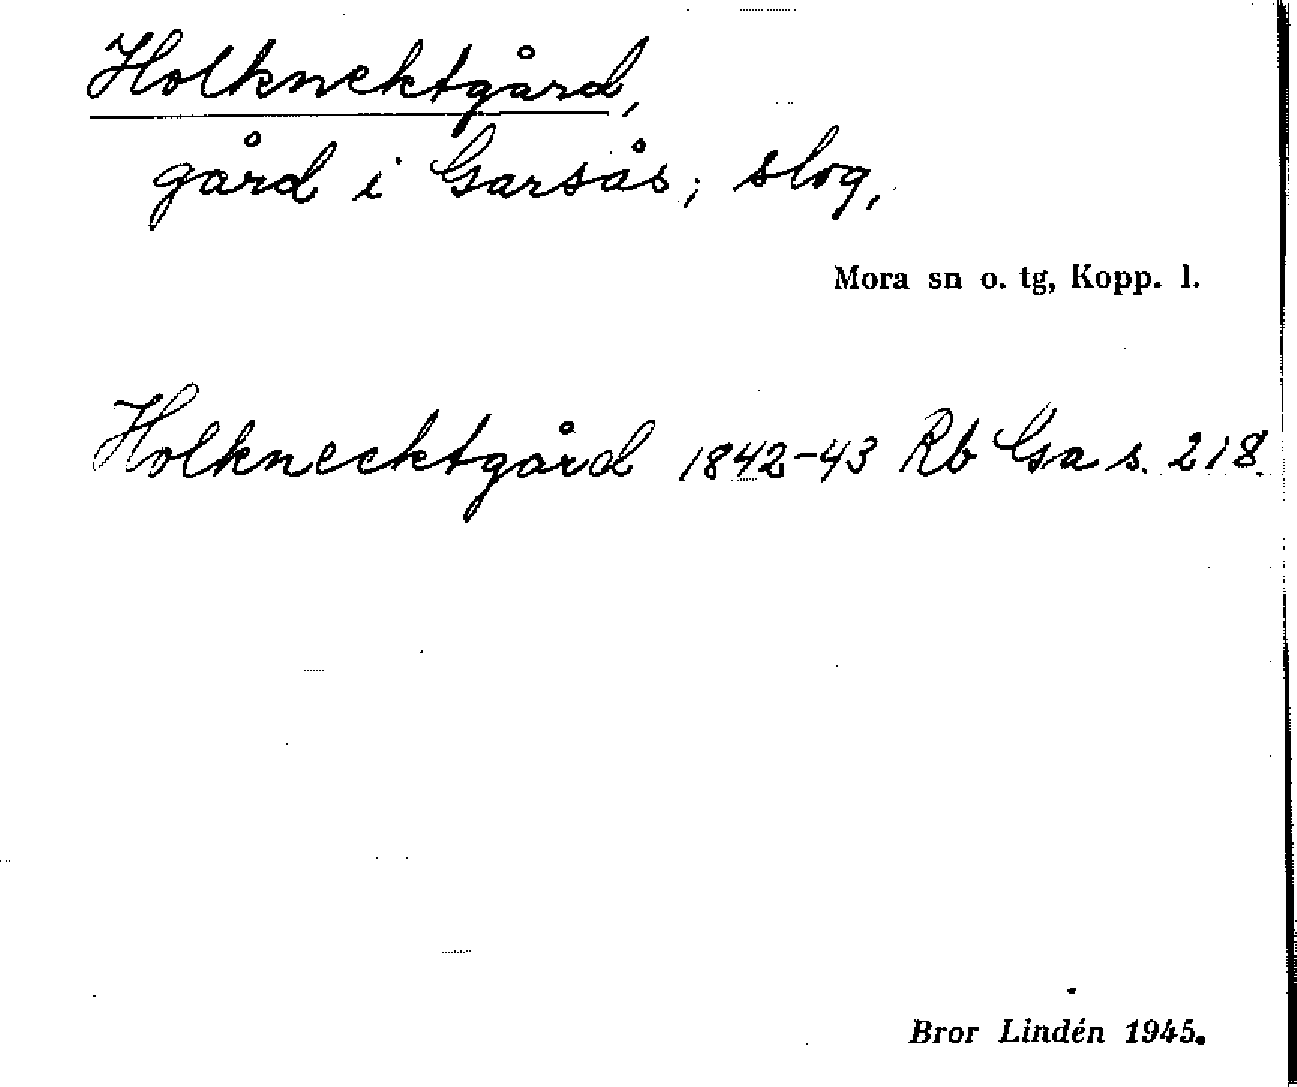 Holknektgård,
gård i Garsås; slog,
Mora sn o. tg, Kopp. l.
Holknecktgård 1842-43 Rb Ga s. 218.
Bror Lindén 1945.